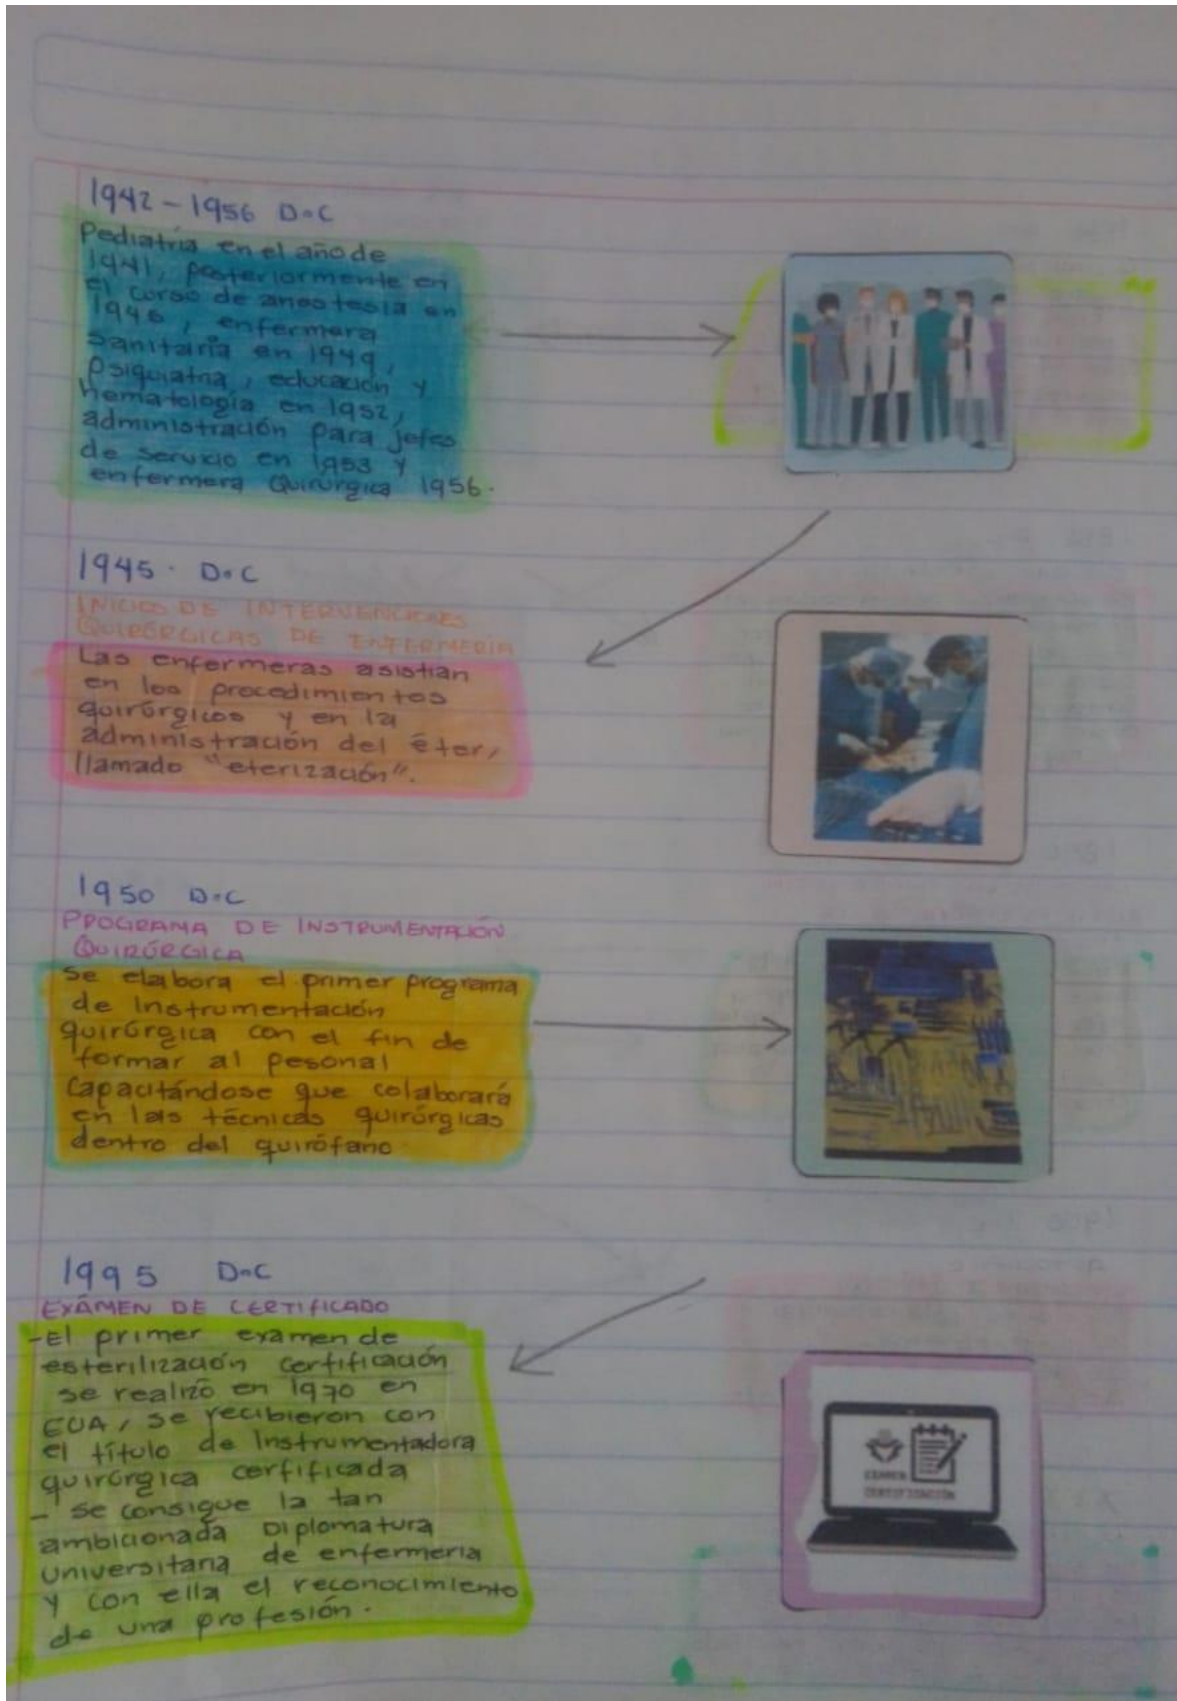 1942-1956 D.C
Pediatría en el año de
1941, posteriormente en
el curso de anestesia en
1945, enfermera
Sanitaria en 1949,
Psiquiatria, educación y
hematología en 1952,
administración para jefes
de servicio en 1953 y
enfermera Quirúrgica 1956.
1945. D.C
INICIOS DE INTERVENCIONES
QUIRÚRGICAS DE ENFERMERÍA
Las enfermeras asistian
en los procedimientos
quirúrgicos y en la
administración del éter,
llamado "eterización".
1950 D.C
PROGRAMA DE INSTRUMENTACIÓN
QUIRÚRGICA
Se elabora el primer programa
de Instrumentación
quirúrgica con el fin de
formar al pesonal
Capacitándose que colaborará
en las técnicas quirúrgicas
dentro del quirófano
1995 D.C
EXÁMEN DE CERTIFICADO
-El primer examen de
esterilización certificación
se realizó en 1970 en
EUA, se recibieron con
el título de Instrumentadora
quirúrgica certificada
- se consigue la tan
ambicionada Diplomatura
Universitaria de enfermeria
y con ella el reconocimiento
de una profesión.
EXAMEN
CERTIFICACIÓN